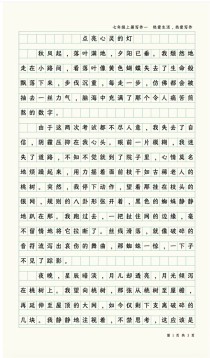 七年级上册写作一 热爱生活，热爱写作
点亮心灵的灯
秋风起，落叶满地，夕阳已垂，我颓然地
走在小路间，看落叶像黄色蝴蝶失去了生命般
飘落下来，步伐沉重，每走一步，仿佛都会被
抽去一丝力气，脑海中充满了那个令人痛苦煎
熬的数字。
由于这两次考试都不尽人意，我失去了自
信，阴霾压抑在我心头，眼前一片模糊，我迷
失了道路，不知不觉就到了院子里，心情莫名
地烦躁起来，用力摇着面前枝干如古稀老人的
桃树，突然，我停下动作，望着那挂在枝头的
银网，规则的八卦形张开着，黑色的蜘蛛静静
地趴在那。我跑过去，一把扯住网的边缘，毫
不留情地将它拉断了，丝线滑落，就像破碎的
音符流泻出哀伤的舞曲，那蜘蛛一惊，一下子
不见了踪影。
夜晚，星辰暗淡，月儿却透亮，月光倾泻
在桃树上，我望向桃树，那张从桃树至屋檐，
再延伸至屋顶的大网，如今仅剩下支离破碎的
几块，我静静地注视着，不禁思考，这应该是
第 1 页 共 3 页